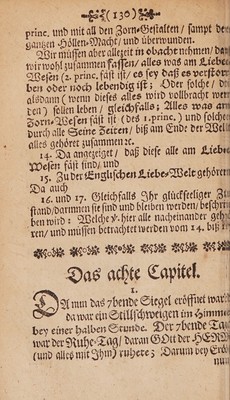 (130)
princ. und mit all den Zorn-Gestalten / sampt der
gantzen Höllen-Macht / und überwunden.
Wir müssen aber allezeit in obacht nehmen / daß
wir wohl zusammen fassen / alles was am Liebe-
Wesen (2. princ. fäst ist / es sey daß es verstor-
ben oder noch lebendig ist; Oder solche / die
alsdann (wenn dieses alles wird vollbracht wer-
den) sollen leben / gleichfalls; Alles was am
Zorn-Wesen fäst ist (des 1. princ.) und solches
durch alle Seine Zeiten / biß am Ende der Welt
alles gehöret zusammen ꝛc.
14. Da angezeiget / daß diese alle am Liebe-
Wesen fäst sind / und
15. Zu der Englischen Liebe-Welt gehören
Da auch
16. und 17. Gleichfalls Ihr glückseliger Zu-
stand / darinnen sie sind und bleiben werden / beschrie-
ben wird: Welche hier alle nacheinander gehö-
ren / und müssen betrachtet werden vom 14. biß
Das achte Capitel.
1.
DA nun das 7bende Siegel eröffnet ward
da war ein Stillschweigen im Himmel
bey einer halben Stunde. Der 7bende Tag
war der Ruhe-Tag / daran GOtt der HERR
(und alles mit Jhm) ruhete; Darum bey Eröf-
nun